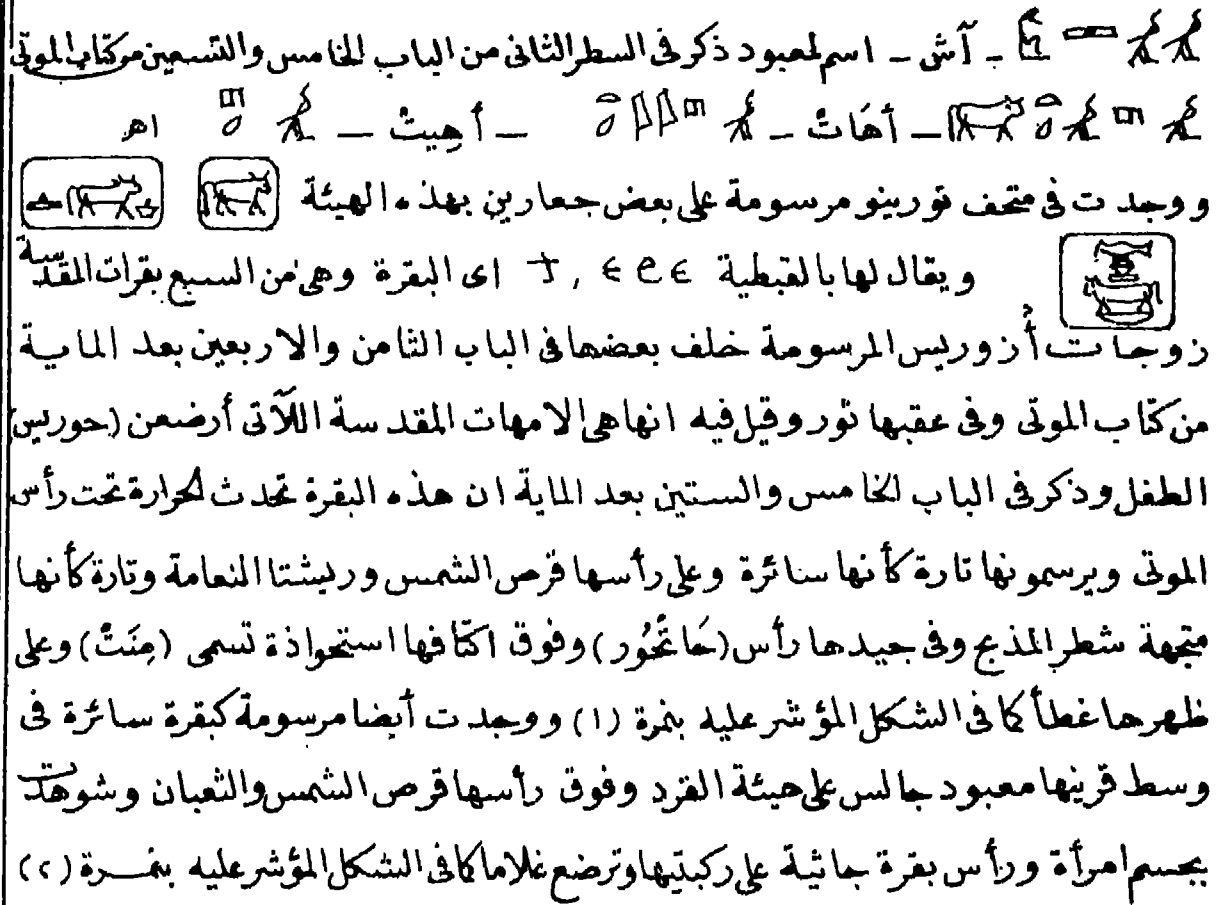 ـ آش ـ اسم لمعبود ذكر فى السطر الثانى من الباب الخامس والتسعين من كتاب الموتى
ـ أهَاتْ ـ ـ أهِيتْ ـ اهر
ووجدت فى متحف تورينو مرسومة على بعض جعارين بهذه الهيئة
ويقال لها بالقبطية ϯ , ⲉϩⲉ اى البقرة وهى من السبع بقرات المقدّسة
زوجات أُزوريس المرسومة خلف بعضها فى الباب الثامن والاربعين بعد الماية
من كتاب الموتى وفى عقبها ثور وقيل فيه انها هى الامهات المقدسة اللآتى أرضعن (حوريس)
الطفل وذكر فى الباب الخامس والستين بعد الماية ان هذه البقرة تحدث الحرارة تحت رأس
الموتى ويرسمونها تارة كأنها سائرة وعلى رأسها قرص الشمس وريشتا النعامة وتارة كأنها
متجهة شطر المذبح وفى جيدها رأس (حَاتْحُور) وفوق اكتافها استحواذة تسمى (مِنَتْ) وعلى
ظهرها غطأ كما فى الشكل المؤشر عليه بنمرة (١) ووجدت أيضا مرسومة كبقرة سائرة فى
وسط قرينها معبود جالس على هيئة القرد وفوق رأسها قرص الشمس والثعبان وشوهدت
بجسم امرأة ورأس بقرة جاثية على ركبتيها وترضع غلاما كما فى الشكل المؤشر عليه بنمـــرة (٢)